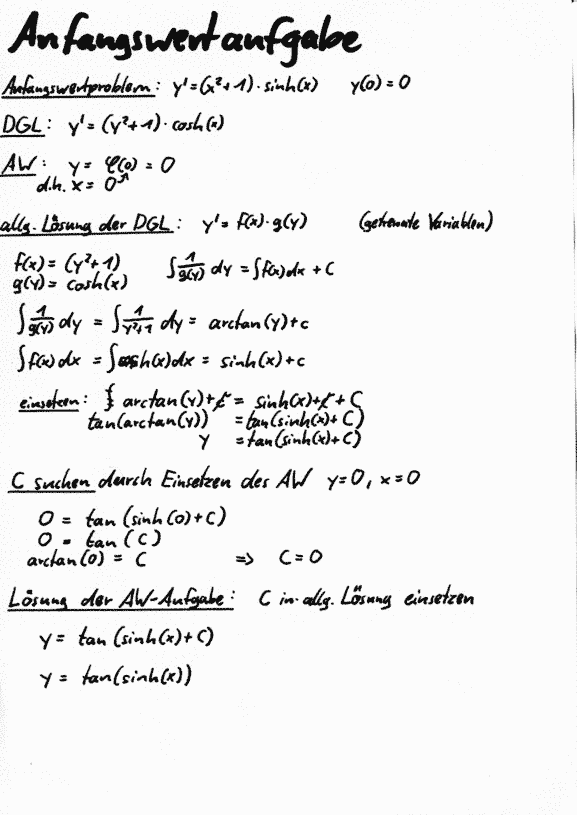 Anfangswertaufgabe
Anfangswertproblem: y' = (x² + 1) · sinh(x) y(0) = 0
DGL: y' = (y² + 1) · cosh(x)
AW: y = φ(0) = 0
d.h. x = 0
allg. Lösung der DGL: y' = f(x) · g(y) (getrennte Variablen)
f(x) = (y² + 1) ∫ 1/g(y) dy = ∫ f(x) dx + C
g(y) = cosh(x)
∫ 1/g(y) dy = ∫ 1/y²+1 dy = arctan(y) + c
∫ f(x) dx = ∫ cosh(x) dx = sinh(x) + c
einsetzen: arctan(y) + c = sinh(x) + c + C
tan(arctan(y)) = tan(sinh(x) + C)
y = tan(sinh(x) + C)
C suchen durch Einsetzen des AW y = 0, x = 0
0 = tan (sinh(0) + C)
0 = tan (C)
arctan(0) = C => C = 0
Lösung der AW-Aufgabe: C in allg. Lösung einsetzen
y = tan (sinh(x) + C)
y = tan(sinh(x))